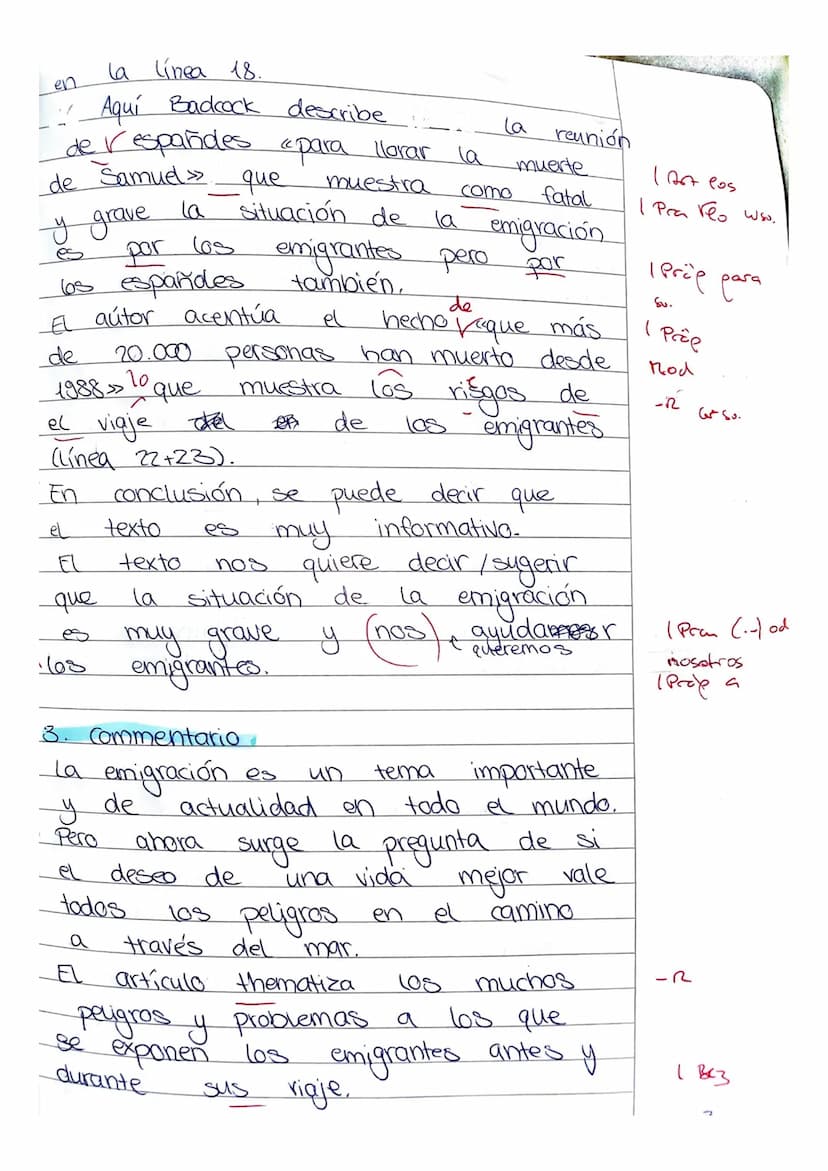 en la línea 18.
Aquí Badcock describe la reunión
de españoles «para llorar la muerte
de Samuel» que muestra como fatal
y grave la situación de la emigración
es por los emigrantes pero por
los españoles también.
El aútor acentúa el hecho de «que más
de 20.000 personas han muerto desde
1988» lo que muestra los risgos de
el viaje de los emigrantes
(línea 22+23).
En conclusión, se puede decir que
el texto es muy informativo.
El texto nos quiere decir/sugerir
que la situación de la emigración
es muy grave y (nos) ayudar
queremos
los emigrantes.
3. Commentario
La emigración es un tema importante
y de actualidad en todo el mundo.
Pero ahora surge la pregunta de si
el deseo de una vida mejor vale
todos los peligros en el camino
a través del mar.
El artículo thematiza los muchos
peligros y problemas a los que
se exponen los emigrantes antes y
durante sus viaje.
| Art los
| Pron lo
| Präp para
| Präp
Mod
-R
| Pron (-) od
nosotros
| Präp a
-R
| Bez